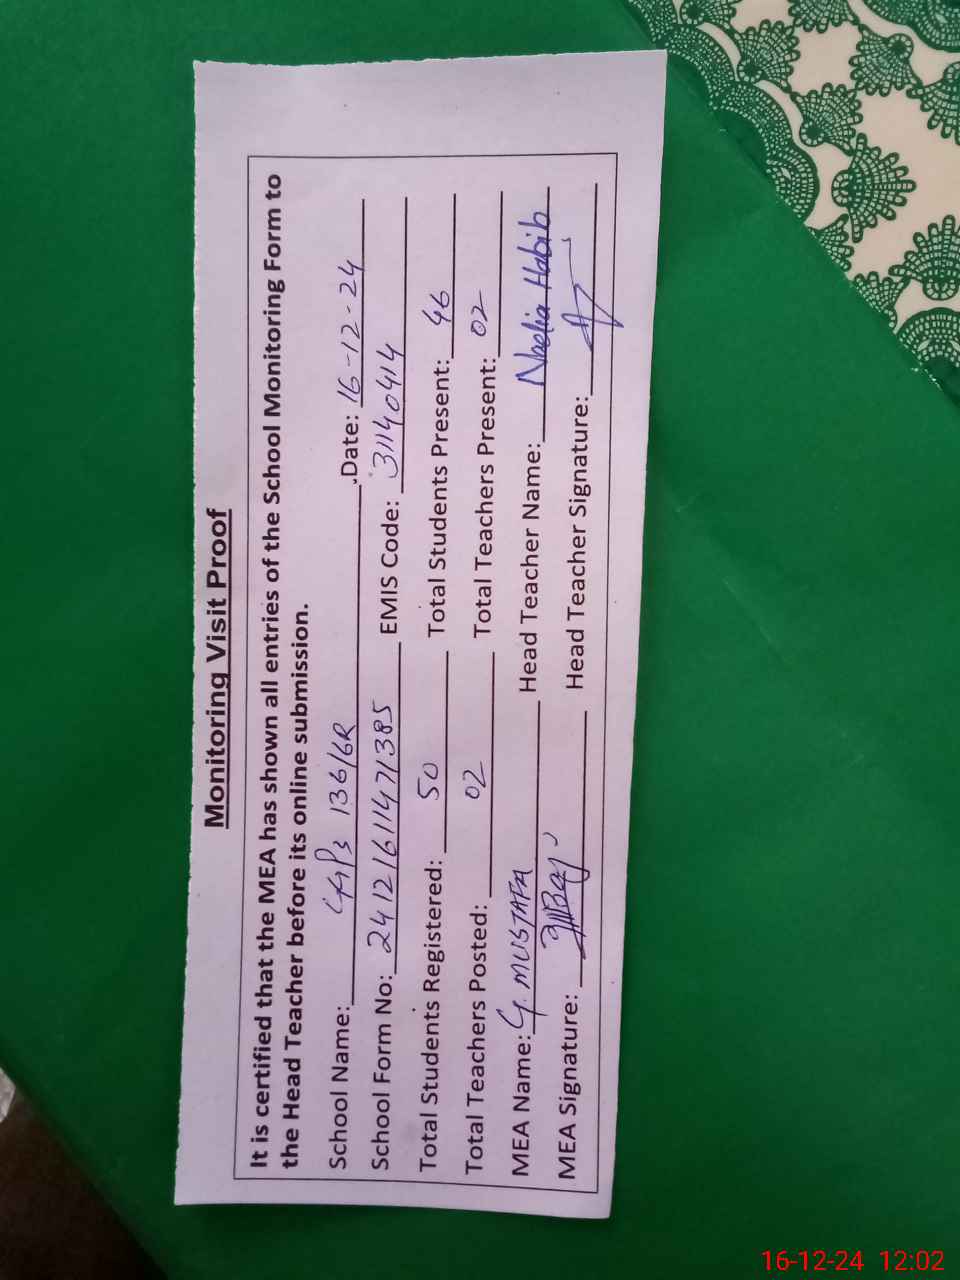 Monitoring Visit Proof
It is certified that the MEA has shown all entries of the School Monitoring Form to
the Head Teacher before its online submission.
School Name: GGPS 136/6R Date: 16-12-24
School Form No: 24121611471385 EMIS Code: 31140414
Total Students Registered: 50 Total Students Present: 46
Total Teachers Posted: 02 Total Teachers Present: 02
MEA Name: G. MUSTAFA Head Teacher Name: Nadia Habib
MEA Signature: Head Teacher Signature:
16-12-24 12:02